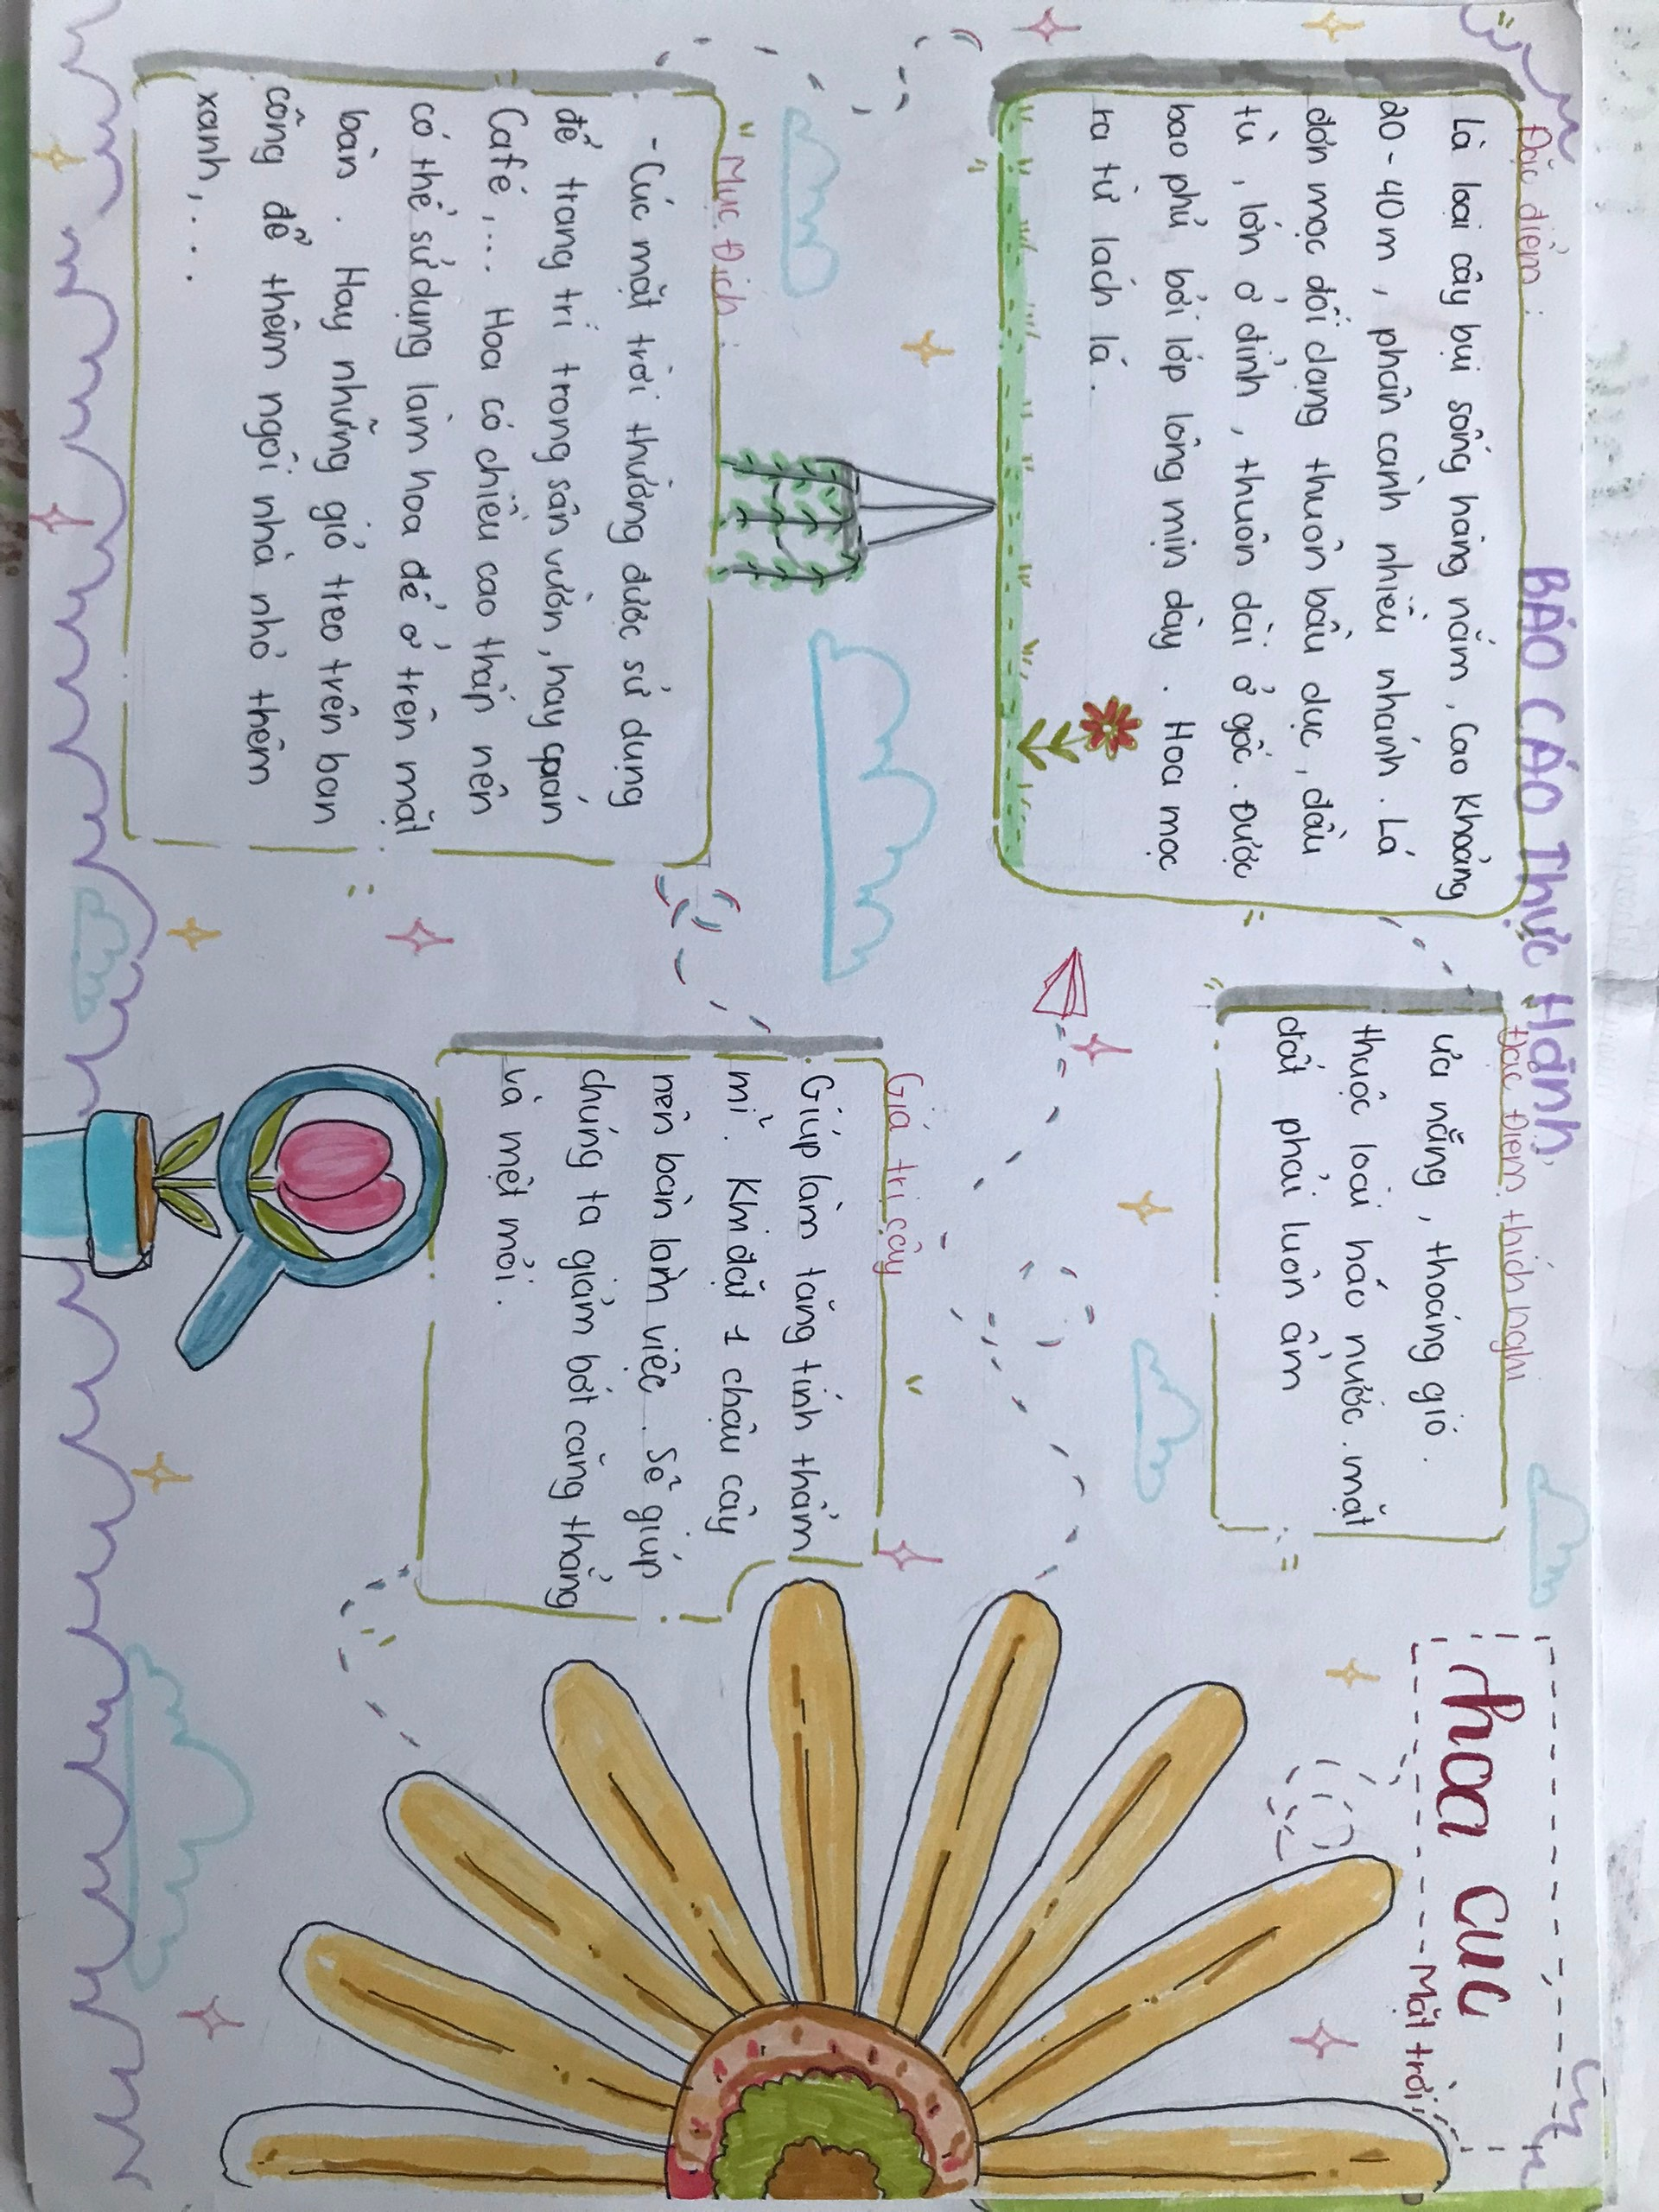 BÁO CÁO Thực Hành
Đặc điểm :
Là loại cây bụi sống hàng năm, Cao Khoảng
20-40m, phân cành nhiều nhánh. Lá
đơn mọc đối dạng thuôn bầu dục, đầu
tù, lớn ở đỉnh, thuôn dài ở gốc. Được
bao phủ bởi lớp lông mịn dày. Hoa mọc
ra từ lách lá.
Đặc Điểm thích nghi
ưa nắng, thoáng gió.
thuộc loài háo nước. mặt
đất phải luôn ẩm
hoa cúc
Mặt trời
Mục Đích :
- Cúc mặt trời thường được sử dụng
để trang trí trong sân vườn, hay quán
Café,... Hoa có chiều cao thấp nên
có thể sử dụng làm hoa để ở trên mặt
bàn. Hay những giỏ treo trên ban
công để thêm ngôi nhà nhỏ thêm
xanh,...
Giá trị cây
Giúp làm tăng tính thẩm
mĩ. Khi đặt 1 chậu cây
nên bàn làm việc. Sẻ giúp
chúng ta giảm bớt căng thẳng
và mệt mỏi.